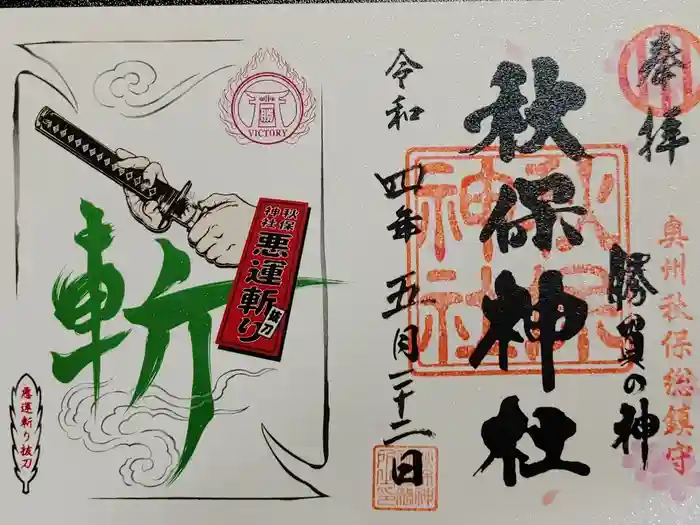 奉拝
奥州秋保総鎮守
勝負の神
秋保神社
秋保神社
令和四年五月二十二日
VICTORY
斬
秋保神社
悪運斬り
抜刀
悪運斬り抜刀